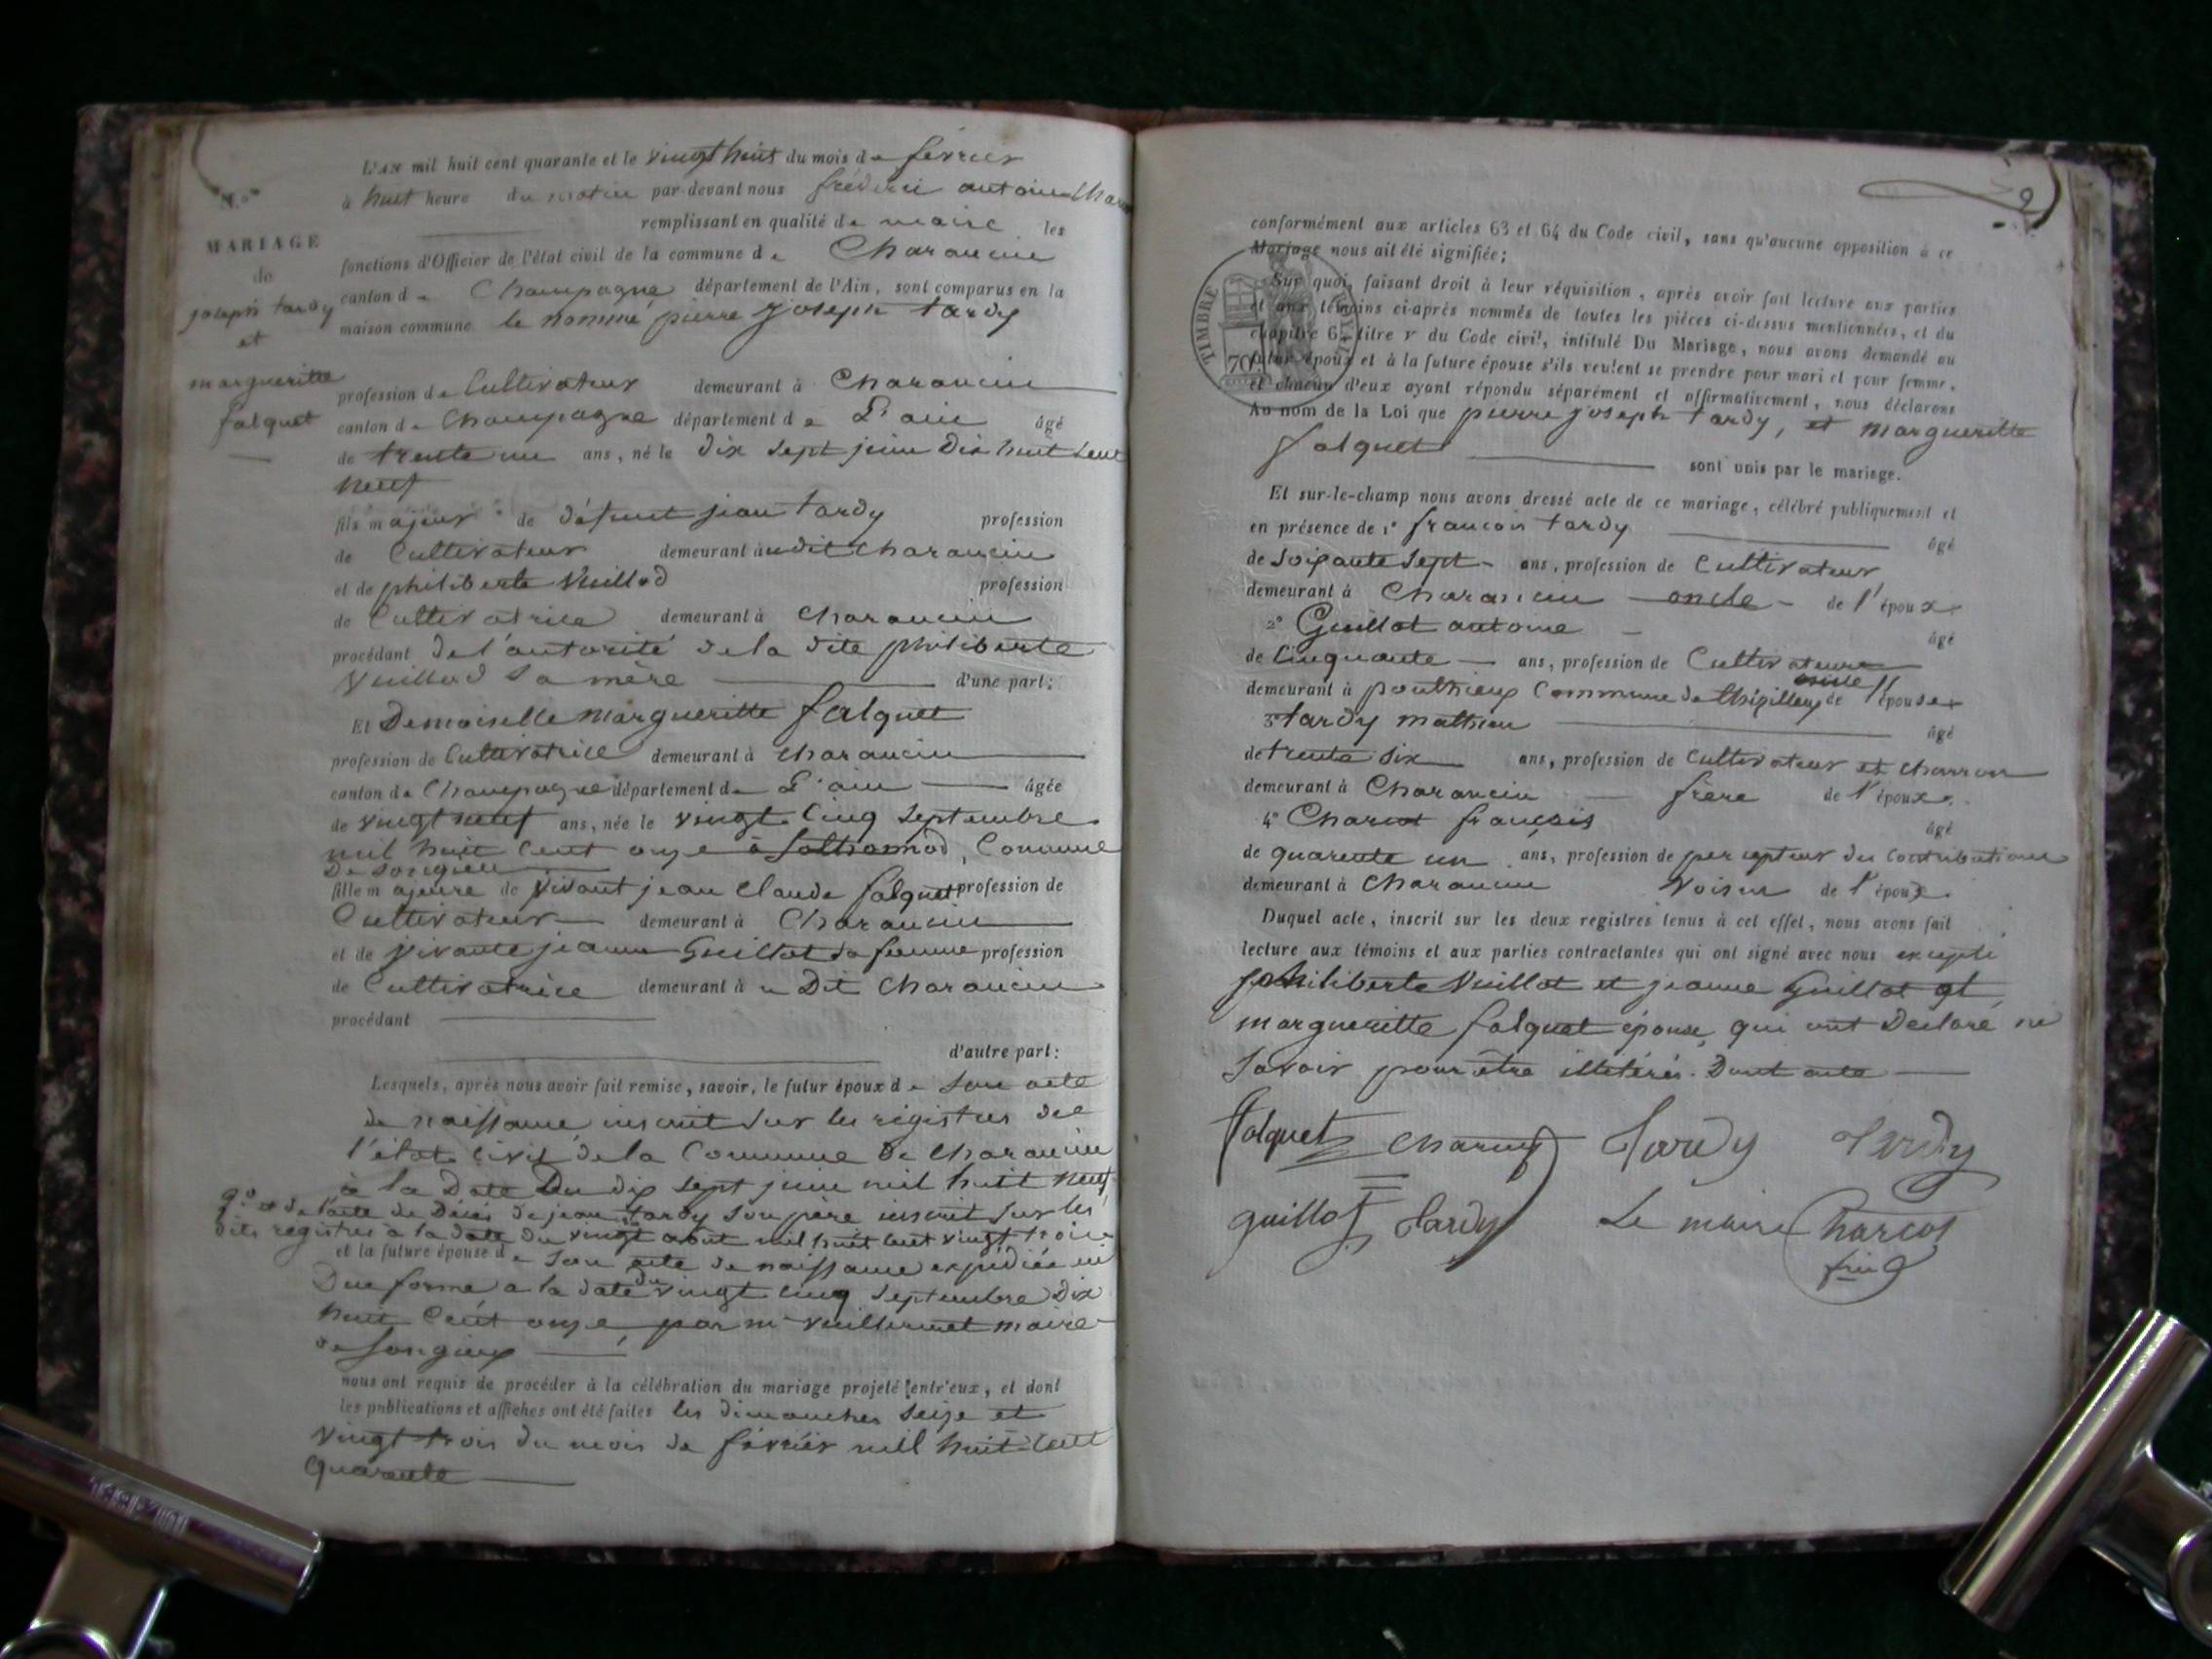 L'AN mil huit cent quarante et le vingt huit du mois de février
à huit heure du matin par-devant nous fréderic antoine Char
remplissant en qualité de maire les
N.°
MARIAGE
de
joseph tardy
et
margueritte
falquet
fonctions d'Officier de l'état civil de la commune de Charancin
canton de Champagne département de l'Ain, sont comparus en la
maison commune le nommé pierre joseph tardy
profession de Cultivateur demeurant à Charancin
canton de Champagne département de L'ain âgé
de trente un ans, né le dix sept juin dix huit cent
neuf
fils majeur de défunt jean tardy profession
de Cultivateur demeurant audit charancin
et de philiberte Vuillod profession
de Cultivatrice demeurant à Charancin
procédant de l'autorité de la dite philiberte
Vuillod sa mère d'une part;
Et Demoiselle margueritte falquet
profession de Cultivatrice demeurant à charancin
canton de Champagne département de L'ain âgée
de vingt neuf ans, née le vingt cinq septembre
mil huit cent onze à Sothonod, Commune
De songieu
fille majeure de vivant jean claude falquet profession de
Cultivateur demeurant à Charancin
et de vivante jeanne Guillot sa femme profession
de Cultivatrice demeurant à u Dit Charancin
procédant
d'autre part:
Lesquels, après nous avoir fait remise, savoir, le futur époux de son acte
de naissance inscrit sur les régistres de
l'état civil de la Commune de charancin
à la Date Du dix sept juin mil huit neuf
et de l'acte de Décès de jean tardy son père inscrit sur les
dits registres à la date du vingt août mil huit cent vingt trois
et la future épouse de son acte de naissance expédiée en
Due forme a la date du vingt cinq septembre Dix
huit cent onze par mr vuillermet maire
de songieux
nous ont requis de procéder à la célébration du mariage projeté entr'eux, et dont
les publications et affiches ont été faites les dimanches seize et
vingt trois du mois de février mil huit cent
quarante
conformément aux articles 63 et 64 du Code civil, sans qu'aucune opposition à ce
Mariage nous ait été signifiée;
TIMBRE ROYAL
70
Sur quoi, faisant droit à leur réquisition, après avoir fait lecture aux parties
et aux témoins ci-après nommés de toutes les pièces ci-dessus mentionnées, et du
chapitre 6, titre v du Code civil, intitulé Du Mariage, nous avons demandé au
futur époux et à la future épouse s'ils veulent se prendre pour mari et pour femme,
et chacun d'eux ayant répondu séparément et affirmativement, nous déclarons
Au nom de la Loi que pierre joseph tardy, et margueritte
falquet sont unis par le mariage.
Et sur-le-champ nous avons dressé acte de ce mariage, célébré publiquement et
en présence de 1° francois tardy âgé
de soixante sept ans, profession de Cultivateur
demeurant à Charancin oncle de l'époux
2° Guillot antoine âgé
de cinquante ans, profession de Cultivateur
demeurant à pouthieux Commune de oncle de l'épouse
3° tardy mathieu âgé
de trente six ans, profession de Cultivateur et charron
demeurant à Charancin frère de l'époux
4° Charcot françois âgé
de quarente un ans, profession de percepteur des Contributions
demeurant à Charancin voisin de l'époux
Duquel acte, inscrit sur les deux registres tenus à cet effet, nous avons fait
lecture aux témoins et aux parties contractantes qui ont signé avec nous excepté
philiberte Vuillot et jeanne Guillot et
margueritte falquet épouse, qui ont Déclaré ne
savoir pour être illétérés. Dont acte
falquet Charcot Tardy Tardy
guillot Tardy Le maire Charcot